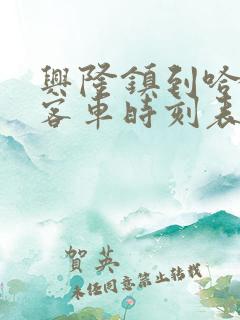 興隆鎮到哈
客車時刻表
賀英
未经同意禁止转载